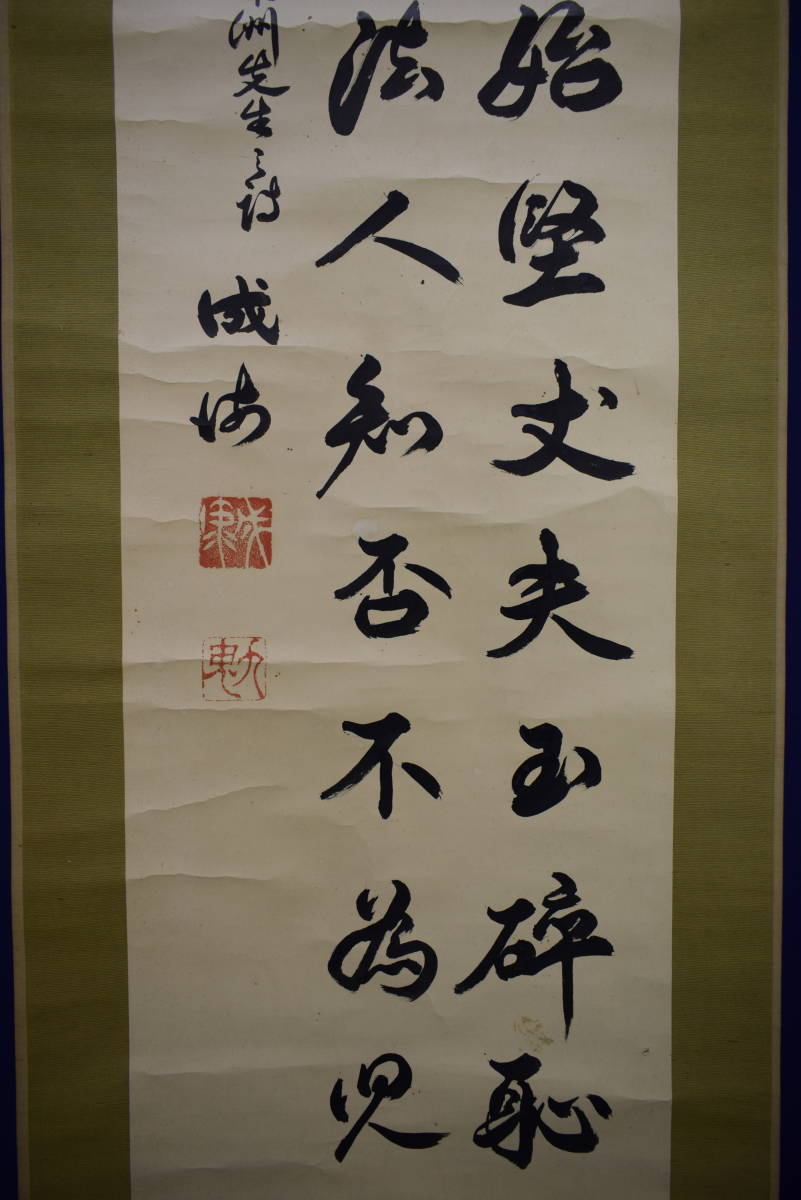 始堅丈夫玉碎恥
法人知否不為児
洲先生之詩 成